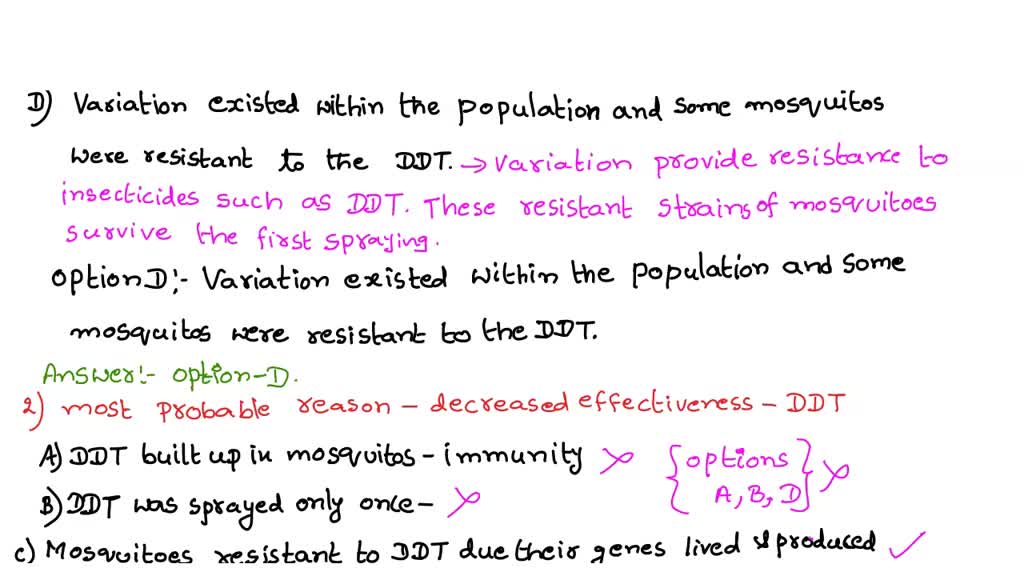 D) Variation existed within the population and some mosquitos
were resistant to the DDT. → Variation provide resistance to
insecticides such as DDT. These resistant strains of mosquitoes
survive the first spraying.
Option D:- Variation existed within the population and some
mosquitos were resistant to the DDT.
Answer:- option-D.
2) most probable reason - decreased effectiveness - DDT
A) DDT built up in mosquitos - immunity ✗ {options
A, B, D} ✗
B) DDT was sprayed only once - ✗
c) Mosquitoes resistant to DDT due their genes lived & produced ✓